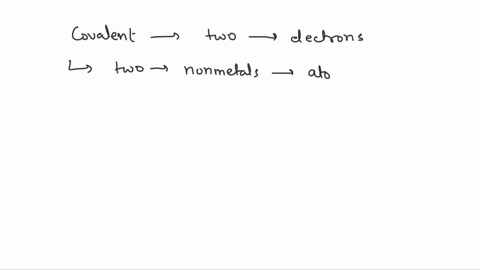 Covalent → two → electrons
↳ two → nonmetals → ato